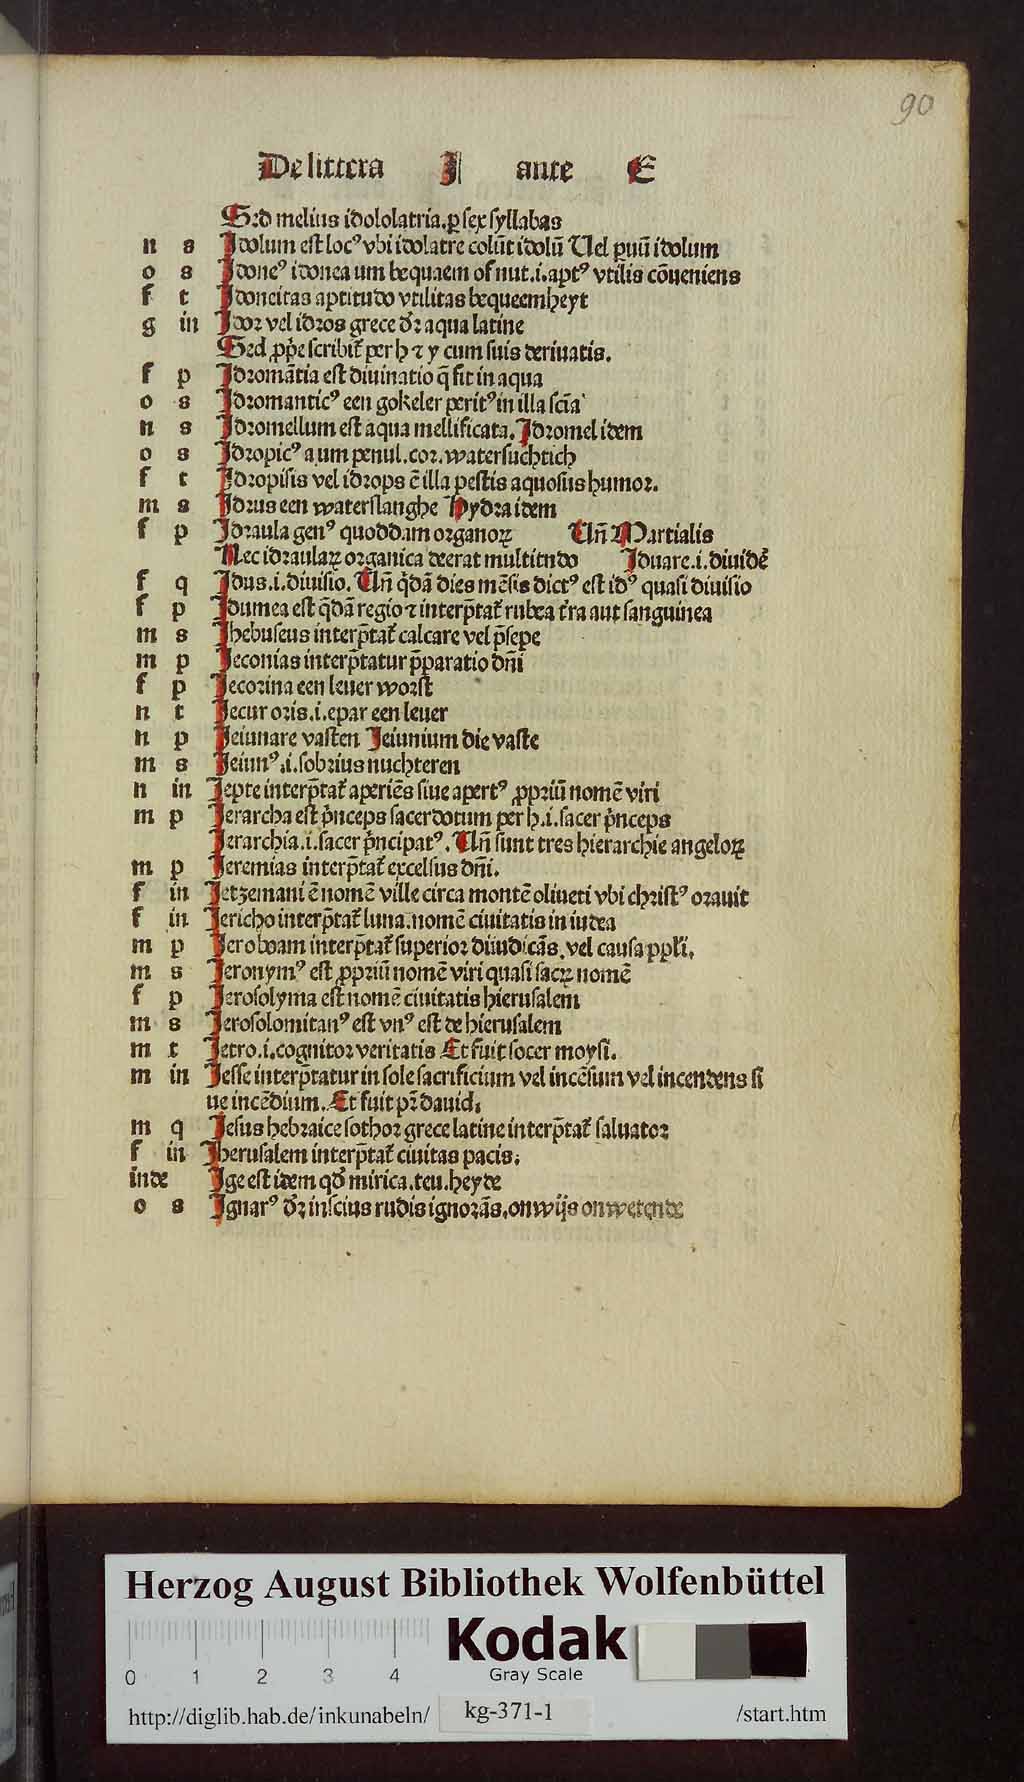 90
De littera I ante E
S:d melius idololatria.ꝑ sex syllabas
n s Idolum est locꝰ vbi idolatre colūt idolū Uel puū idolum
o s Idoneꝰ idonea um bequaem of nut.i.aptꝰ vtilis cōueniens
f t Idoneitas aptitudo vtilitas bequeemheyt
g in Idor vel idros grece dr̄ aqua latine
Sed ꝓpe scribit̄ per h ⁊ y cum suis deriuatis.
f p Idromātia est diuinatio q̄ fit in aqua
o s Idromanticꝰ een gokeler peritꝰ in illa scīa
n s Idromellum est aqua mellificata. Idromel idem
o s Idropicꝰ a um penul.cor.watersuchtich
f t Idropisis vel idrops ē illa pestis aquosus humor.
m s Idrus een waterslanghe Hydra idem
f p Idraula genꝰ quoddam organoꝝ Un̄ Martialis
Nec idraulaꝝ organica deerat multitudo Iduare.i.diuidē
f q Idus.i.diuisio. Un̄ q̄dā dies mēsis dictꝰ est idꝰ quasi diuisio
f p Idumea est q̄dā regio ⁊ interp̄tat̄ rubea t̄ra aut sanguinea
m s Ihebuseus interp̄tat̄ calcare vel p̄sepe
m p Ieconias interp̄tatur p̄paratio dn̄i
f p Iecorina een leuer worst
n t Iecur oris.i.epar een leuer
n p Ieiunare vasten Ieiunium die vaste
m s Ieiunꝰ.i.sobrius nuchteren
n in Iepte interp̄tat̄ aperiēs siue apertꝰ ꝓpriū nomē viri
m p Ierarcha est p̄nceps sacerdotum per h.i.sacer p̄nceps
Ierarchia.i.sacer p̄ncipatꝰ. Un̄ sunt tres hierarchie angeloꝝ
m p Ieremias interp̄tat̄ excelsus dn̄i.
f in Ietzemani ē nomē ville circa montē oliueti vbi christꝰ orauit
f in Iericho interp̄tat̄ luna.nomē ciuitatis in iudea
m p Ieroboam interp̄tat̄ superior diiudicās.vel causa ppl̄i.
m s Ieronymꝰ est ꝓpriū nomē viri quasi sacꝝ nomē
f p Ierosolyma est nomē ciuitatis hierusalem
m s Ierosolomitanꝰ est vnꝰ est de hierusalem
m t Ietro.i.cognitor veritatis Et fuit socer moysi.
m in Iesse interp̄tatur in sole sacrificium vel incēsum vel incendens si
ue incēdium. Et fuit pr̄ dauid.
m q Iesus hebraice sothor grece latine interp̄tat̄ saluator
f in Iherusalem interp̄tat̄ ciuitas pacis.
inde Ige est idem qd̄ mirica.teu.heyde
o s Ignarꝰ dr̄ inscius rudis ignorās.onwijs onwetende
Herzog August Bibliothek Wolfenbüttel
Kodak
0 1 2 3 4 Gray Scale
http://diglib.hab.de/inkunabeln/ kg-371-1 /start.htm